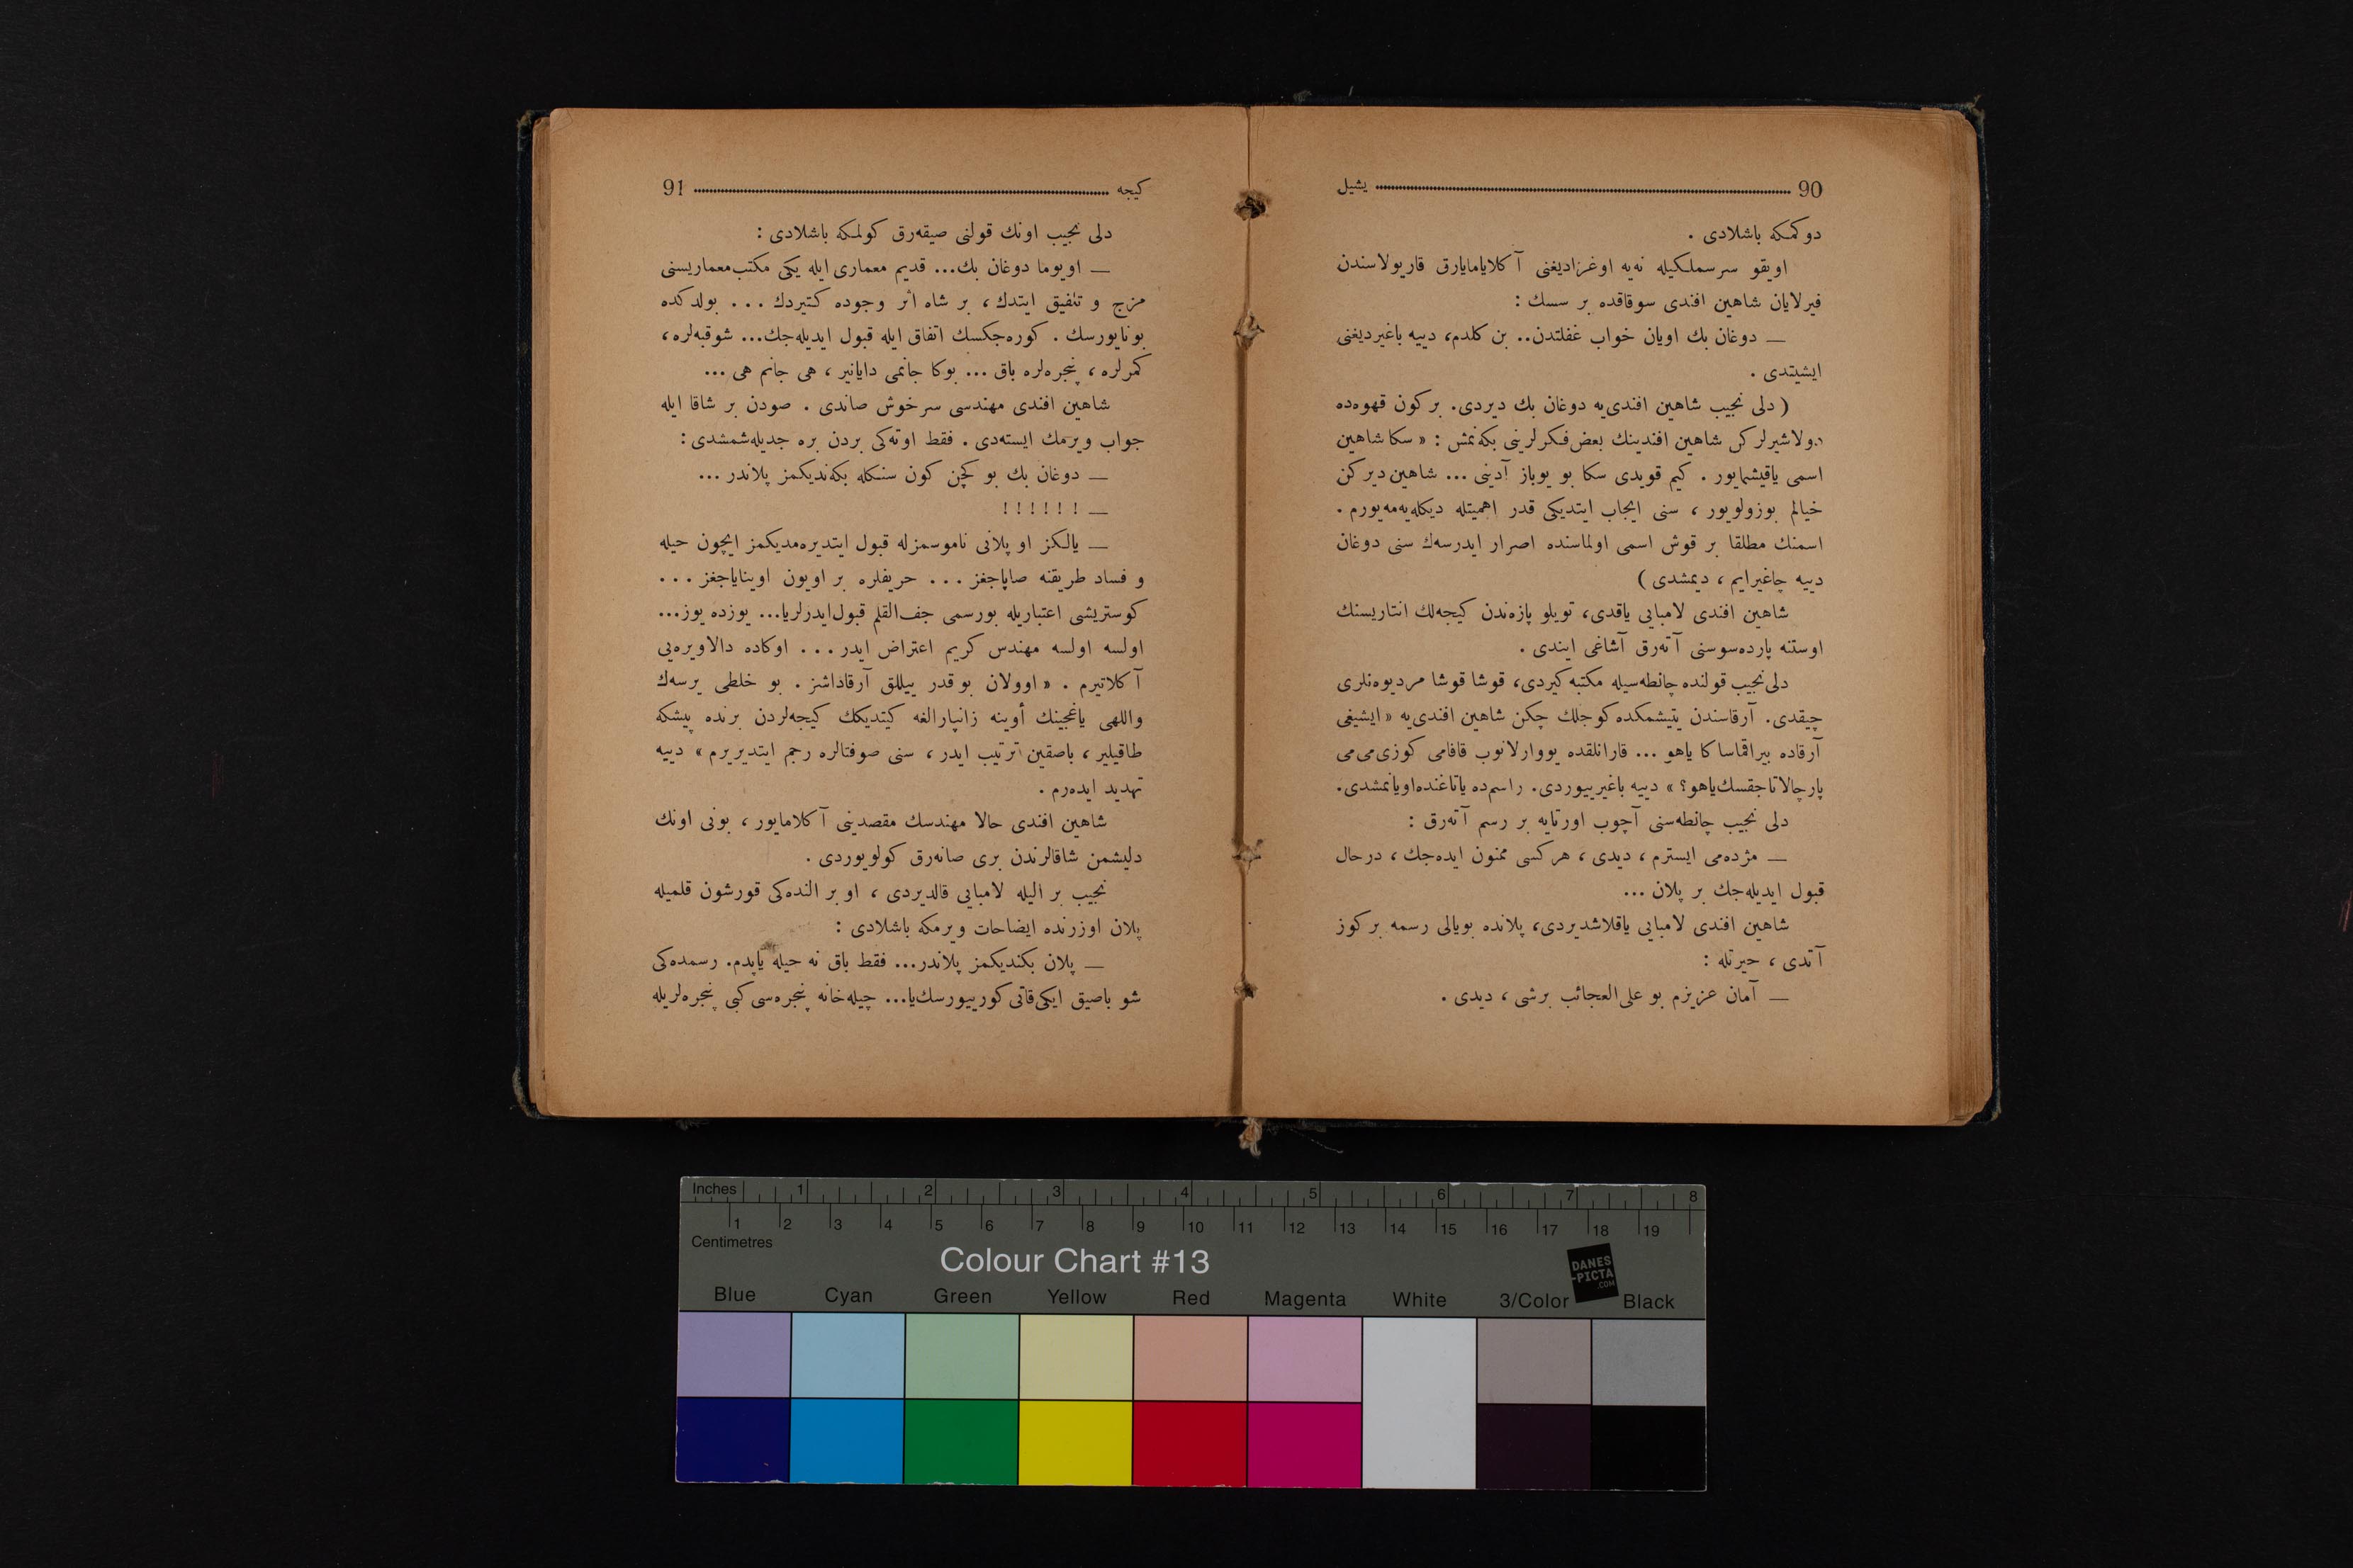 90 یشیل
دوکمکه باشلادی .
اویقو سرسملکیله نه‌یه اوغرادیغنی آکلایامایارق قاریولاسندن
فیرلایان شاهین افندی سوقاقده بر سسك :
— دوغان بك اویان خواب غفلتدن.. بن کلدم، دییه باغیردیغنی
ایشیتدی .
( دلی نجیب شاهین افندی‌یه دوغان بك دیردی. بر کون قهوه‌ده
دولاشیرلرکن شاهین افندینك بعض فکرلرینی بکه‌نمش : « سکا شاهین
اسمی یاقیشمایور . کیم قویدی سکا بو یوباز آدینی ... شاهین دیرکن
خیالم بوزولویور ، سنی ایجاب ایتدیکی قدر اهمیتله دیکله‌یه‌مه‌یورم .
اسمنك مطلقا بر قوش اسمی اولماسنده اصرار ایدرسه‌ك سنی دوغان
دییه چاغیرایم ، دیمشدی )
شاهین افندی لامبایی یاقدی، تویلو پازه‌ندن کیجه‌لك انتاریسنك
اوستنه پارده‌سوسنی آته‌رق آشاغی ایندی .
دلی نجیب قولنده چانطه‌سیله مکتبه کیردی، قوشا قوشا مردیوه‌نلری
چیقدی. آرقاسندن یتیشمکده کوجلك چکن شاهین افندی‌یه « ایشیغی
آرقاده بیراقماسا کا یاهو ... قارانلقده یووارلانوب قافامی کوزی‌می‌می
پارچالاتاجقسك یاهو؟ » دییه باغیرییوردی. راسم‌ده یاتاغنده اویانمشدی.
دلی نجیب چانطه‌سنی آچوب اورتایه بر رسم آته‌رق :
— مژده‌می ایسترم ، دیدی ، هرکسی ممنون ایده‌جك ، درحال
قبول ایدیله‌جك بر پلان ...
شاهین افندی لامبایی یاقلاشدیردی، پلانده بویالی رسمه بر کوز
آتدی ، حیرتله :
— آمان عزیزم بو علی‌العجائب برشی ، دیدی .
کیجه 91
دلی نجیب اونك قولنی صیقه‌رق کولمکه باشلادی :
— اویوما دوغان بك... قدیم معماری ایله یکی مکتب معماریسنی
مزج و تلفیق ایتدك ، بر شاه اثر وجوده کتیردك ... بولدکده
بونایورسك . کوره‌جکسك اتفاق ایله قبول ایدیله‌جك... شوقبه‌لره ،
کمرلره ، پنجره‌لره باق ... بوکا جانمی دایانیر ، هی جانم هی ...
شاهین افندی مهندسی سرخوش صاندی . صودن بر شاقا ایله
جواب ویرمك ایسته‌دی . فقط اوته‌کی بردن بره جدیله‌شمشدی :
— دوغان بك بو کچن کون سنکله بکه‌ندیکمز پلاندر ...
— ! ! ! ! ! !
— یالکز او پلانی ناموسمزله قبول ایتدیره‌مدیکمز ایچون حیله
و فساد طریقنه صاپاجغز ... حریفلره بر اویون اوینایاجغز ...
کوستریشی اعتباریله بورسمی جف‌القلم قبول‌ایدرلریا... یوزده یوز...
اولسه اولسه مهندس کریم اعتراض ایدر ... اوکاده دالاویره‌یی
آکلاتیرم . « اوولان بوقدر ییللق آرقاداشز . بو خلطی یرسه‌ك
واللهی یاغجینك أوینه زانپارالغه کیتدیکك کیجه‌لردن برنده پیشکه
طاقیلیر ، باصقین ترتیب ایدر ، سنی صوفتالره رجم ایتدیریرم » دییه
تهدید ایده‌رم .
شاهین افندی حالا مهندسك مقصدینی آکلامایور ، بونی اونك
دلیشمن شاقالرندن بری صانه‌رق کولویوردی .
نجیب بر الیله لامبایی قالدیردی ، او بر النده‌کی قورشون قلمیله
پلان اوزرنده ایضاحات ویرمکه باشلادی :
— پلان بکندیکمز پلاندر... فقط باق نه حیله یاپدم. رسمده‌کی
شو باصیق ایکی‌قاتی کورییورسك‌یا... چیله‌خانه پنجره‌سی کبی پنجره‌لریله
Inches 1 2 3 4 5 6 7 8
1 2 3 4 5 6 7 8 9 10 11 12 13 14 15 16 17 18 19
Centimetres
Colour Chart #13
DANES
-PICTA
.COM
Blue Cyan Green Yellow Red Magenta White 3/Color Black